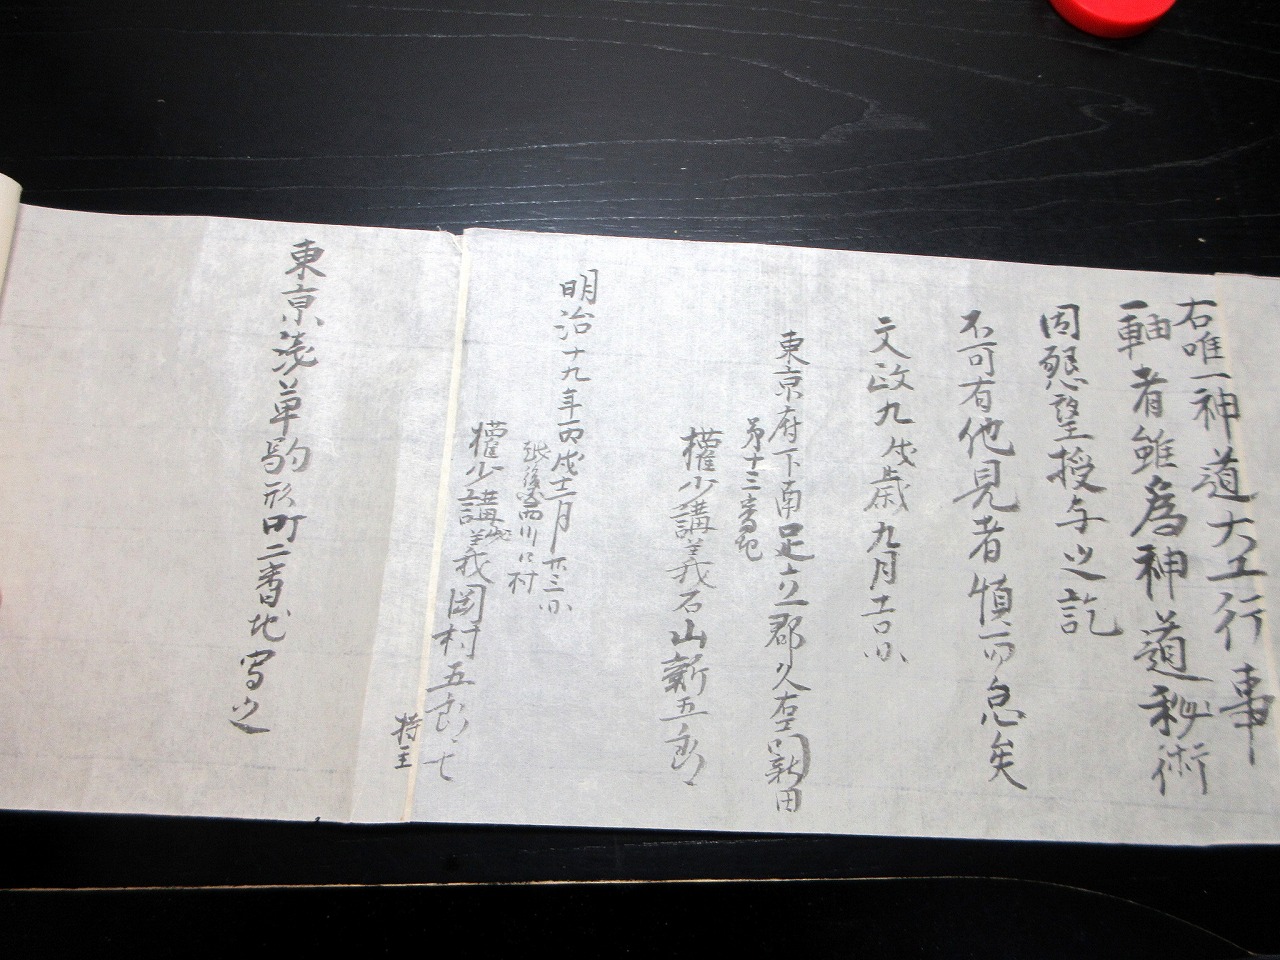 右唯一神道大工行事
一軸者雖為神道秘術
因懇望授与之訖
不可有他見者慎而怠矣
文政九戌歳九月吉日
東京府下南足立郡久右エ門新田
第十三番地
権少講義石山新五郎
明治十九年丙戌十一月廿三日
越後国 川口村
権少講義岡村五郎七
持主
東京浅草駒形町二番地写之